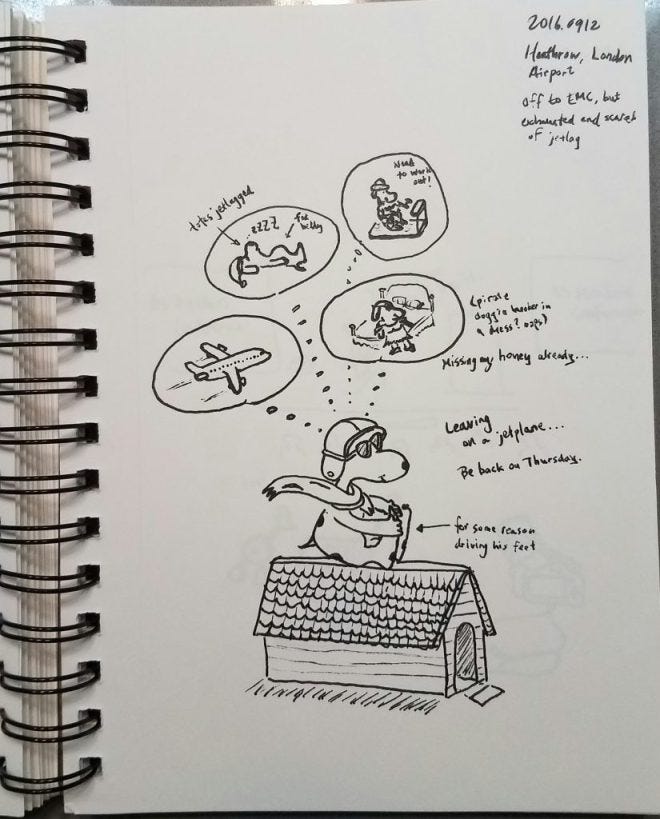 2016.0912
Heathrow, London
Airport
off to EMC, but
exhausted and scared
of jetlag
Need
to work
out!
totes jetlagged
zzzz
fat
belly
(pirate
doggie hooker in
a dress? oops)
Missing my honey already...
Leaving
on a jetplane...
Be back on Thursday.
for some reason
driving his feet